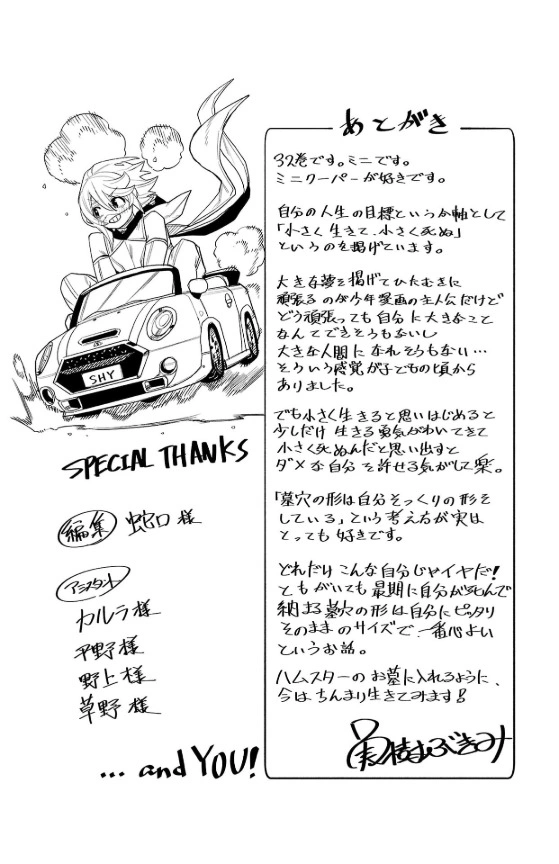 あとがき
32巻です。ミニです。
ミニクーパーが好きです。
自分の人生の目標というか軸として
「小さく生きて、小さく死ぬ」
というのを掲げています。
大きな夢を掲げてひたむきに
頑張るのが少年漫画の主人公だけど
どう頑張っても自分に大きなこと
なんてできそうもないし
大きな人間になれそうもない…
そういう感覚が子どもの頃から
ありました。
でも小さく生きると思いはじめると
少しだけ生きる勇気がわいてきて
小さく死ぬんだと思い出すと
ダメな自分を許せる気がして楽。
「墓穴の形は自分そっくりの形を
している」という考え方が実は
とっても好きです。
どれだけこんな自分じゃイヤだ!
ともがいても最期に自分が死んで
納まる墓穴の形は自分にピッタリ
そのままのサイズで、一番心よい
というお話。
ハムスターのお墓に入れるように、
今はちんまり生きてみます!
実樹ぶきみ
SHY
SPECIAL THANKS
編集 蛇口様
アシスタント
カルラ様
平野様
野上様
草野様
... and YOU!